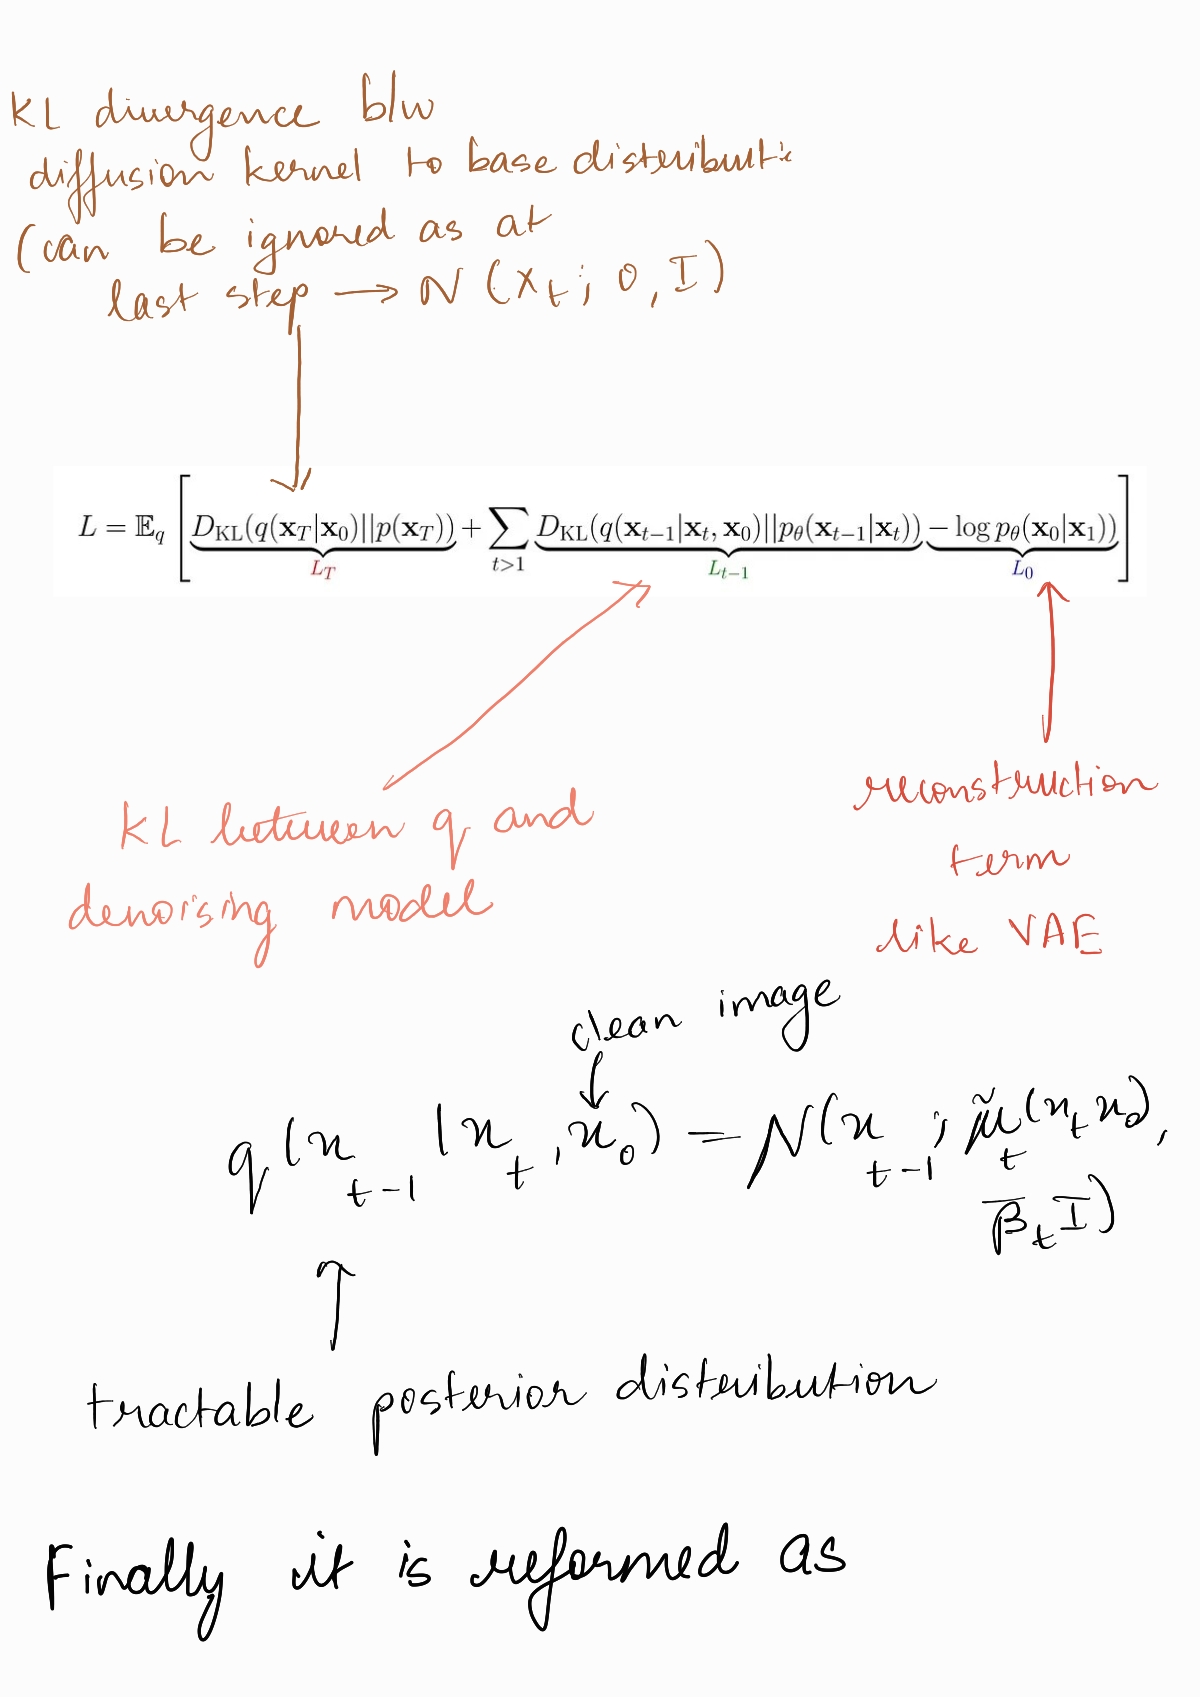 KL divergence b/w
diffusion kernel to base distributi
(can be ignored as at
last step → N (x_t; 0, I)
L = 𝔼_q [ D_KL(q(x_T|x_0)||p(x_T)) + ∑_{t>1} D_KL(q(x_{t−1}|x_t, x_0)||p_θ(x_{t−1}|x_t)) − log p_θ(x_0|x_1)) ]
L_T L_{t−1} L_0
KL between q and
denoising model
reconstruction
term
like VAE
clean image
q(x_{t-1} | x_t, x_0) = N(x_{t-1}; μ̃_t(x_t x_0),
β̅_t I)
tractable posterior distribution
Finally it is reformed as